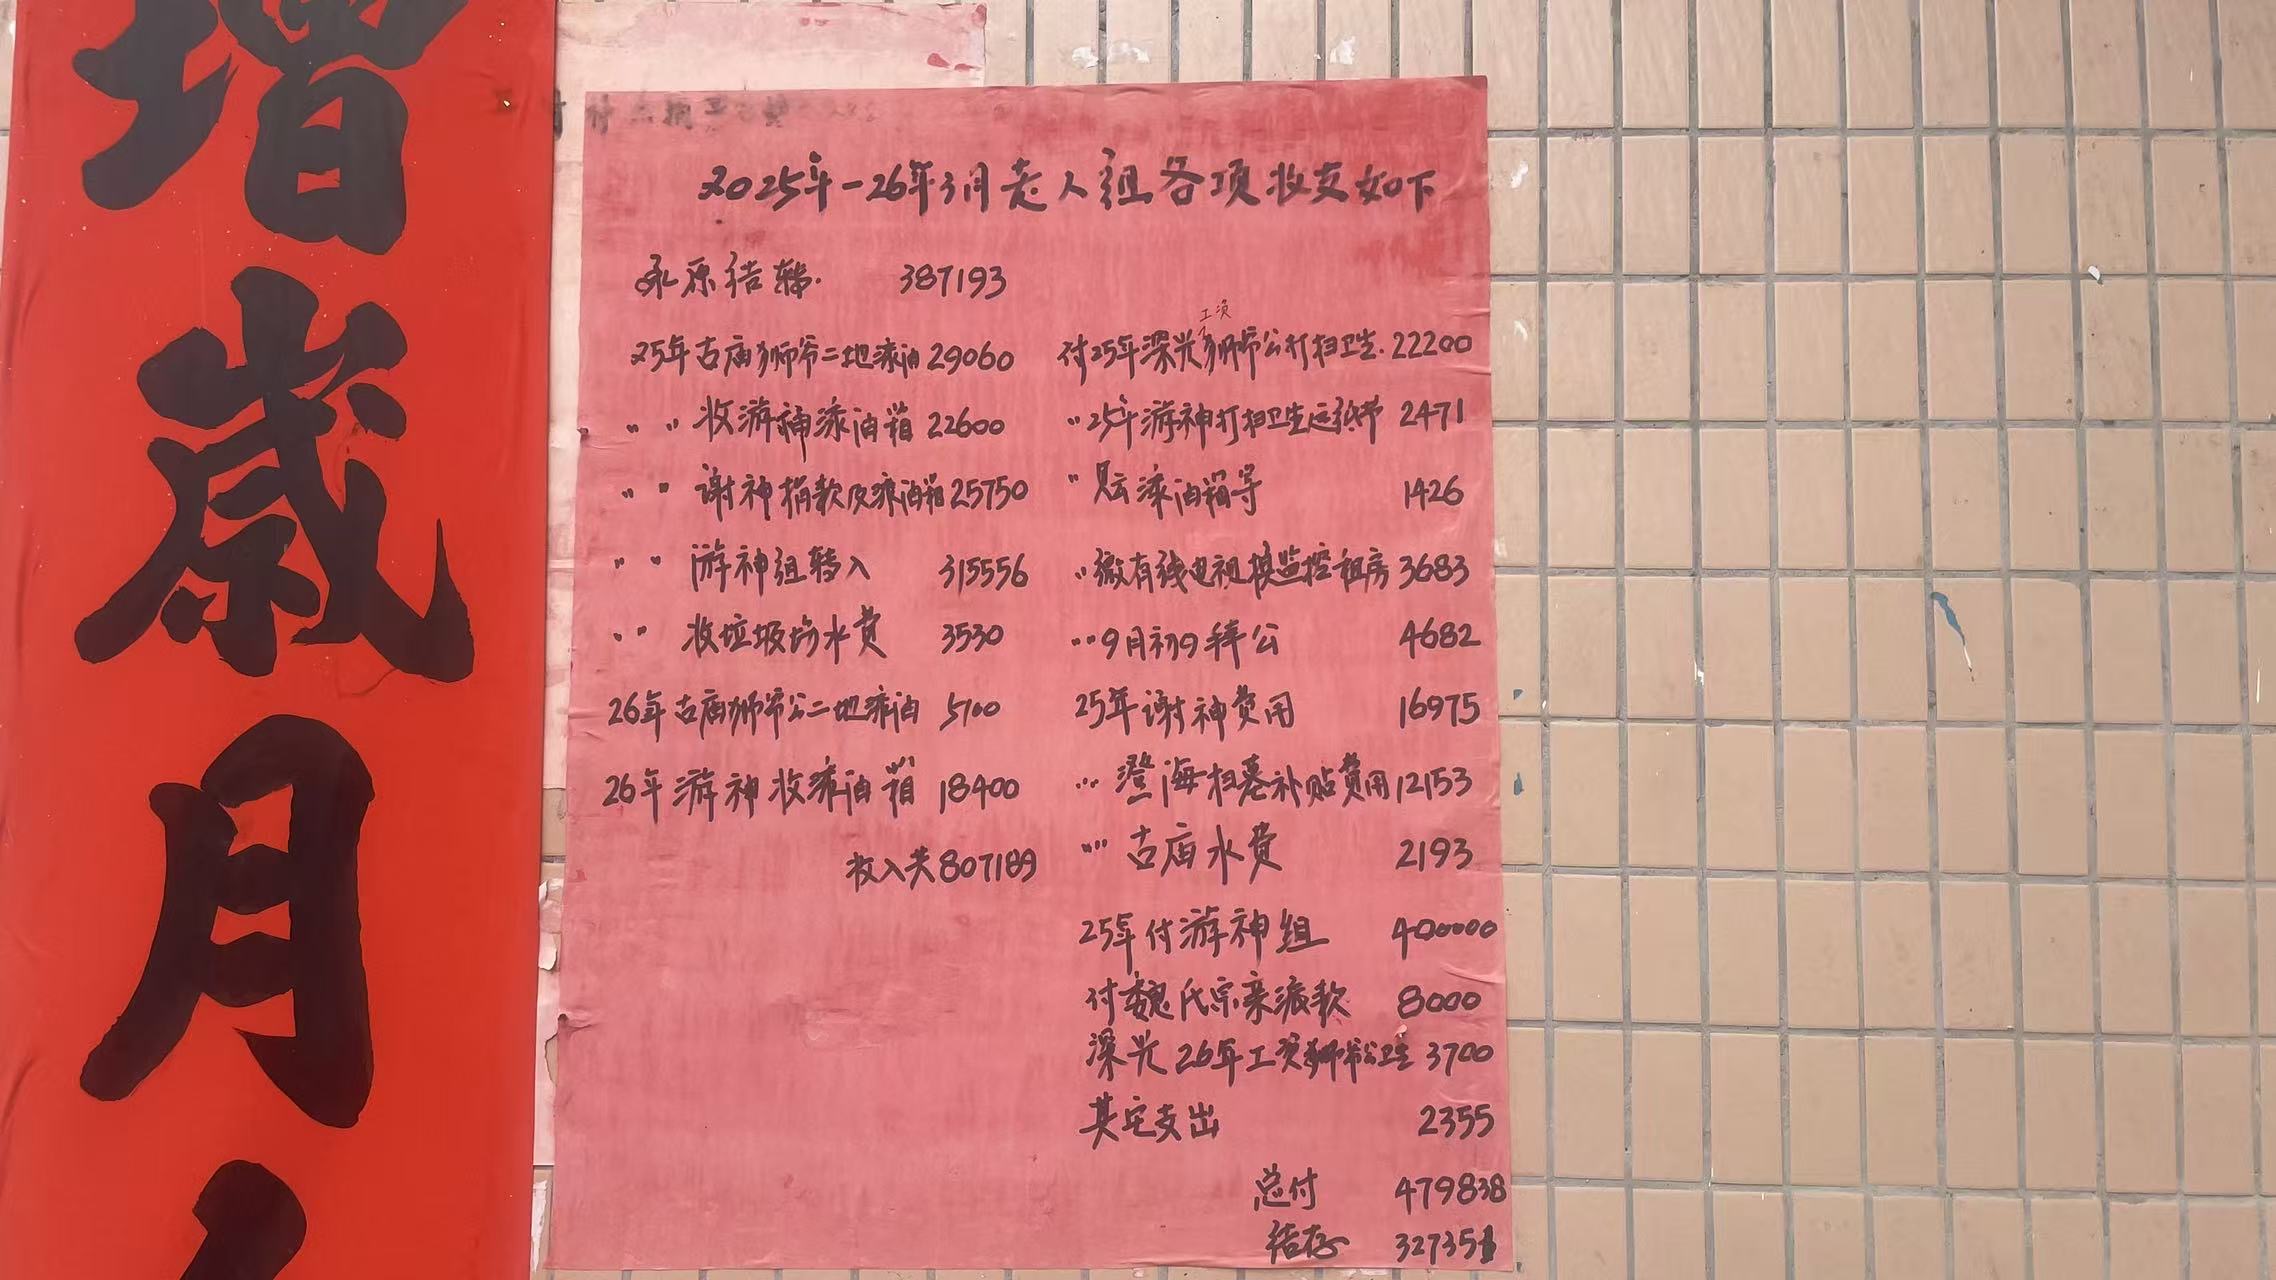 增
歲
月
2025年-26年3月老人组各项收支如下
承原结转. 387193
25年古庙狮爷二地添油 29060
〃 〃 收游神添油箱 22600
〃 〃 谢神捐款及添油箱 25750
〃 〃 游神组转入 315556
〃 〃 收垃圾场水费 3530
26年古庙狮爷公二地添油 5100
26年游神收添油箱 18400
收入共 807189
工资
付25年深兴狮爷公打扫卫生. 22200
〃25年游神打扫卫生 2471
〃 添油箱等 1426
〃缴有线电视 监控租房 3683
〃 9月初9拜公 4682
25年谢神费用 16975
〃 澄海扫墓补贴费用 12153
〃 古庙水费 2193
25年付游神组 400000
付魏氏宗亲派款 8000
深兴26年工资狮爷公卫生 3700
其它支出 2355
总付 479838
结存 327351